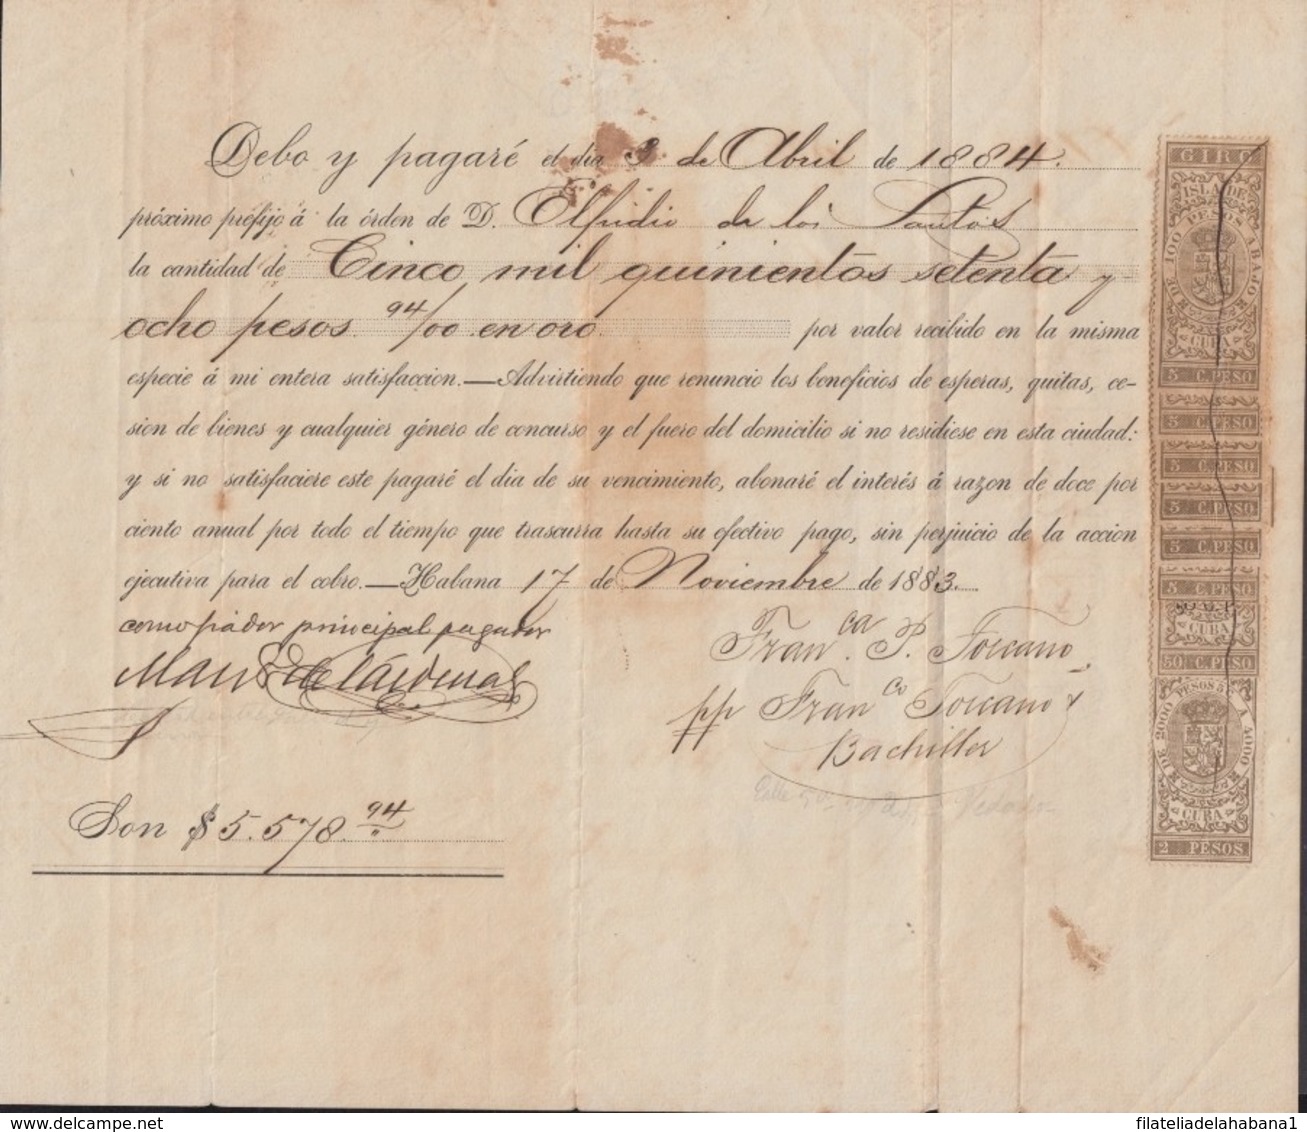 Debo y pagaré el dia 3 de Abril de 1884.
próximo préfijo á la órden de D. Elpidio de los Santos
la cantidad de Cinco mil quinientos setenta y
ocho pesos 94/00 en oro. por valor recibido en la misma
especie á mi entera satisfaccion.—Advirtiendo que renuncio los beneficios de esperas, quitas, ce-
sion de bienes y cualquier género de concurso y el fuero del domicilio si no residiese en esta ciudad:
y si no satisfaciere este pagaré el dia de su vencimiento, abonaré el interés á razon de doce por
ciento anual por todo el tiempo que trascurra hasta su efectivo pago, sin perjuicio de la accion
ejecutiva para el cobro.—Habana 17 de Noviembre de 1883.
como fiador principal pagador
de Cárdenas
Franca. P. Toscano
pp Franco Toscano y
Bachiller
Calle 5ª Vedado
Son $ 5.578.94
GIRO
ISLA DE
PESOS
DE 100 ABAJO
CUBA
5 C. PESO
5 C. PESO
5 C. PESO
5 C. PESO
5 C. PESO
5 C. PESO
CUBA
50 C. PESO
DE 2000 PESOS 5 C A 4000
CUBA
2 PESOS
delcampe.net
filateliadelahabana1